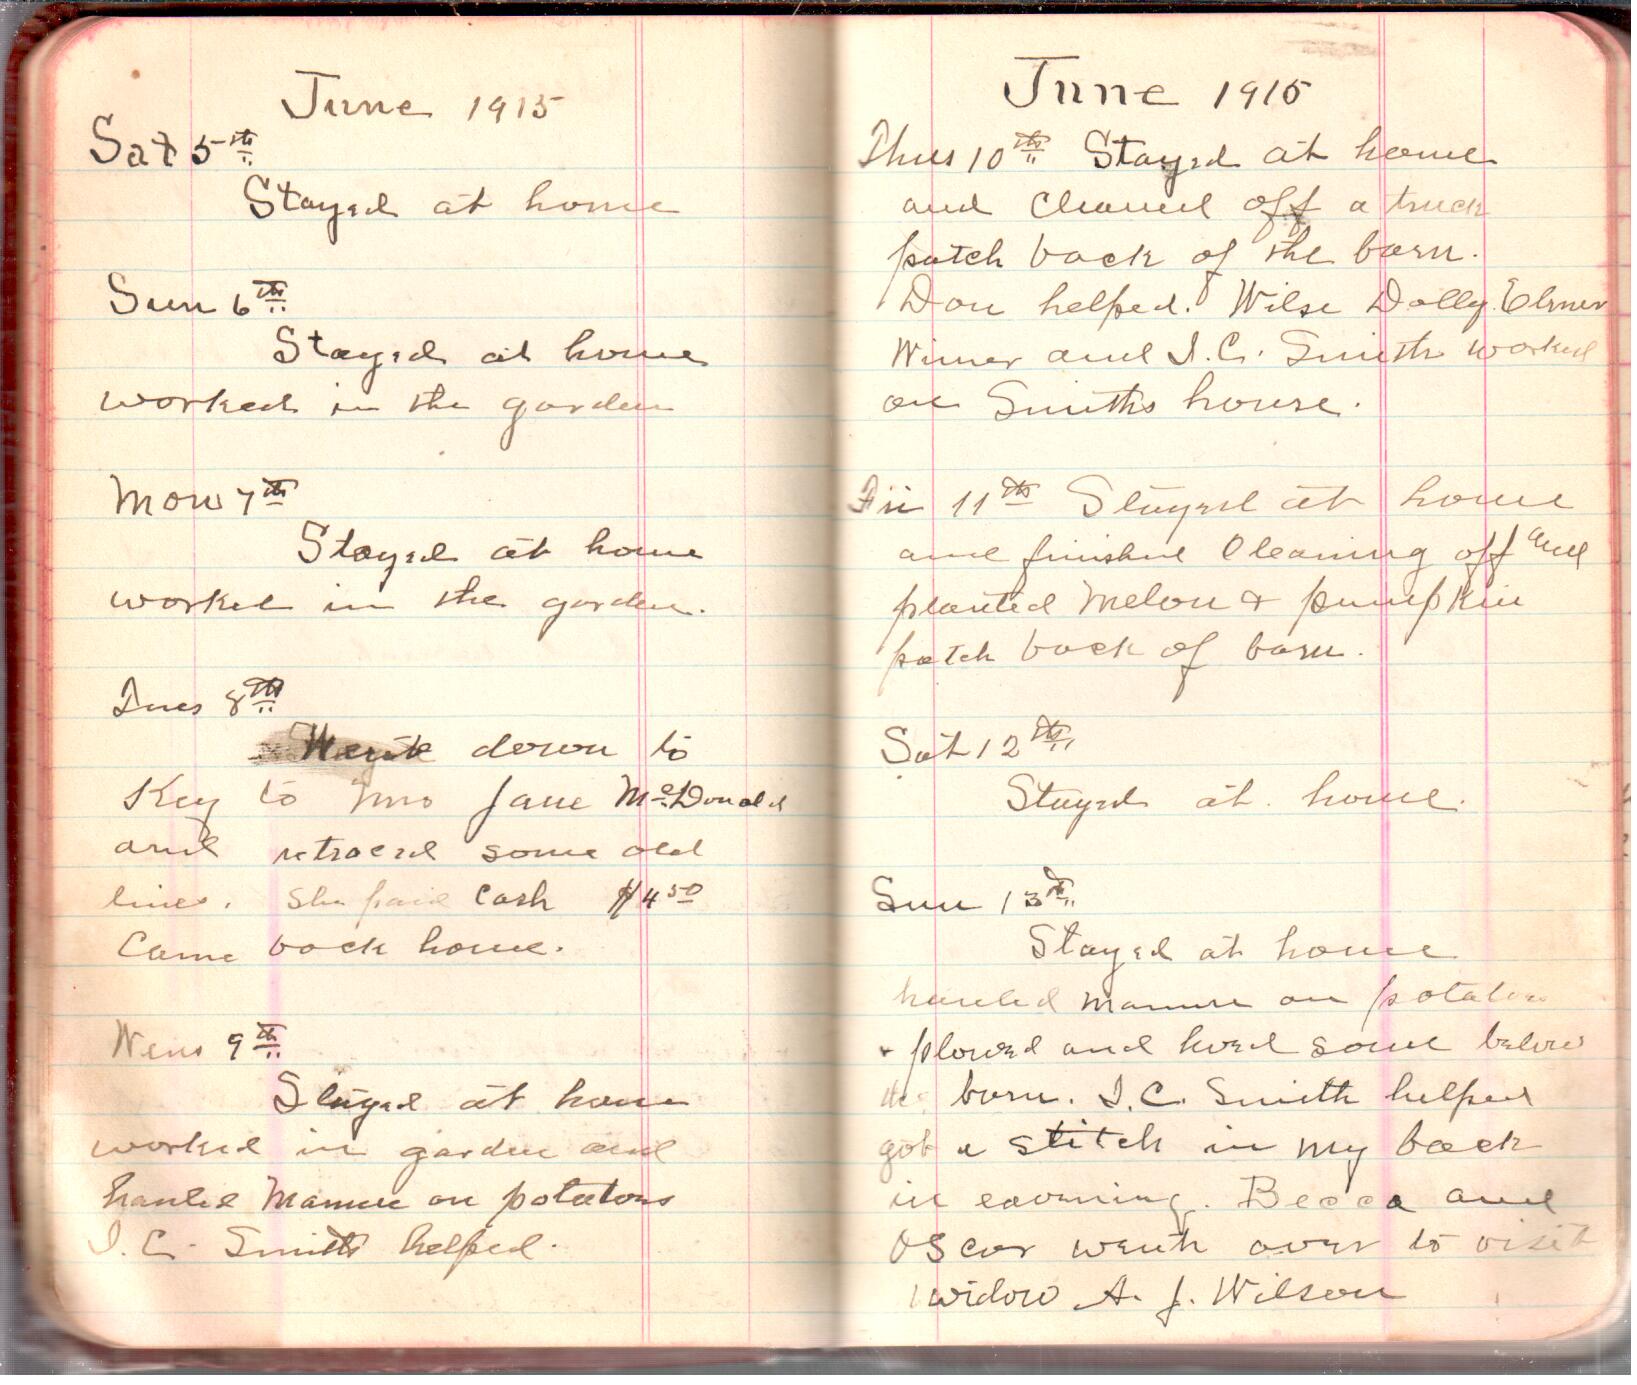 June 1915
Sat 5th
Stayed at home
Sun 6th
Stayed at home
worked in the garden
Mon 7th
Stayed at home
worked in the garden.
Tues 8th
Went down to
Key to Mrs Jane McDonald
and retraced some old
lines. She paid Cash $4 50
Came back home.
Wens 9th
Stayed at home
worked in garden and
hauled Manure on potatoes
I. C. Smith helped.
June 1915
Thus 10th Stayed at home
and Cleaned off a truck
patch back of the barn.
Don helped. Wilse Dolly. Elmer
Wimer and I. C. Smith worked
on Smiths house.
Fri 11th Stayed at home
and finished Cleaning off and
planted Melon & pumpkin
patch back of barn.
Sat 12th
Stayed at home.
Sun 13th
Stayed at home
hauled manure on potatoes
& plowed and hoed some below
the barn. I. C. Smith helped
got a stitch in my back
in evening. Becca and
Oscar went over to visit
widow A. J. Wilson